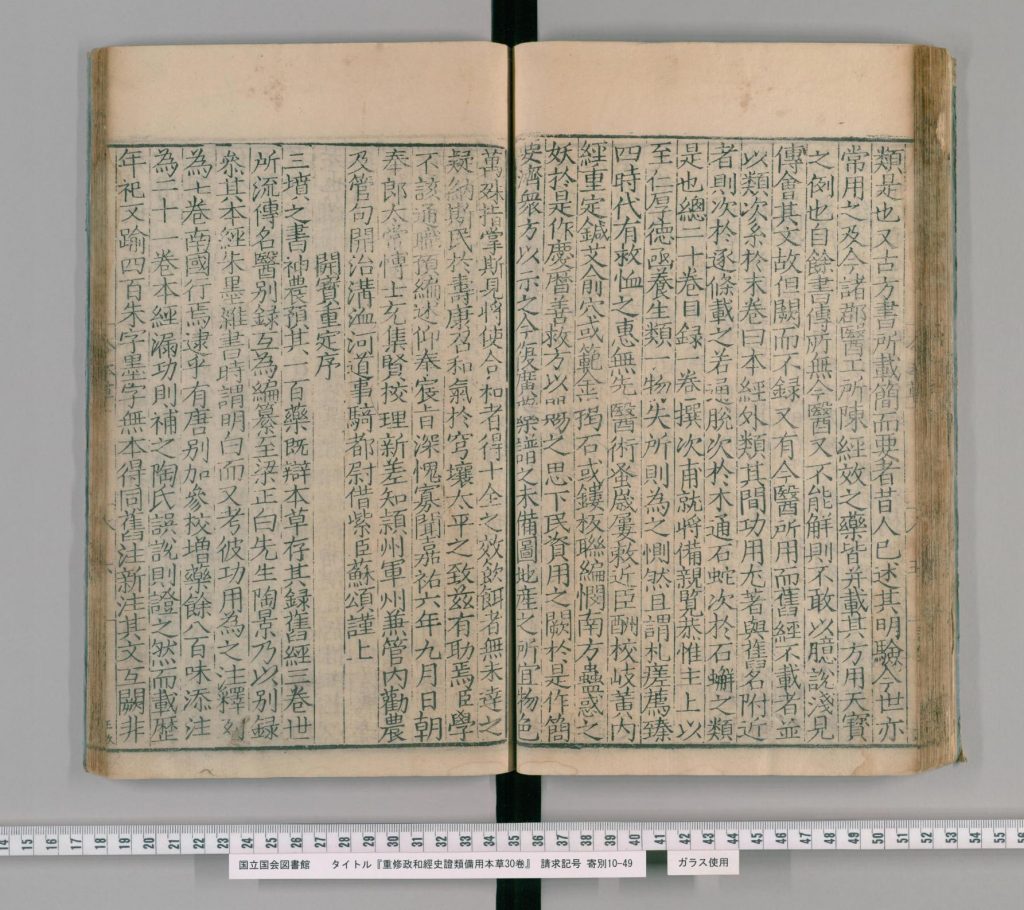 類是也又古方書所載簡而要者昔人已述其明驗今世亦
常用之及今諸郡醫工所陳經效之藥皆并載其方用天寶
之例也自餘書傳所無今醫又不能解則不敢以臆說淺見
傅會其文故但闕而不録又有今醫所用而舊經不載者並
以類次系於末卷曰本經外類其間功用尤著與舊名附近
者則次於逐條載之若通脫次於木通石蛇次於石蟹之類
是也總二十卷目録一卷撰次甫就將備親覽恭惟主上以
至仁厚德函養生類一物失所則為之惻然且謂札瘥薦臻
四時代有救恤之惠無先醫術蚤歲屢敕近臣酬校岐黃内
經重定鍼艾俞穴或範金揭石或鏤板聯編憫南方蠱惑之
妖於是作慶曆善救方以賜之思下民資用之闕於是作簡
要濟衆方以示之今復廣藥譜之未備圖地産之所宜物色
萬殊指掌斯見將使合和者得十全之效飲餌者無未達之
疑納斯民於壽康召和氣於穹壤太平之致茲有助焉臣學
不該通職預編述仰奉宸旨深愧寡聞嘉祐六年九月日朝
奉郎太常博士充集賢校理新差知潁州軍州兼管内勸農
及管句開治溝洫河道事騎都尉借紫臣蘇頌謹上
開寶重定序
三墳之書神農預其一百藥既辯本草存其録舊經三卷世
所流傳名醫別録互為編纂至梁正白先生陶景乃以別録
叅其本經朱墨雜書時謂明白而又考彼功用為之注釋列
為七卷南國行焉逮乎有唐別加參校増藥餘八百味添注
為二十一卷本經漏功則補之陶氏誤說則證之然而載歷
年祀又踰四百朱字墨字無本得同舊注新注其文互闕非
国立国会図書館 タイトル『重修政和經史證類備用本草30巻』 請求記号 寄別10-49
ガラス使用
14 15 16 17 18 19 20 21 22 23 24 25 26 27 28 29 30 31 32 33 34 35 36 37 38 39 40 41 42 43 44 45 46 47 48 49 50 51 52 53 54 55 56